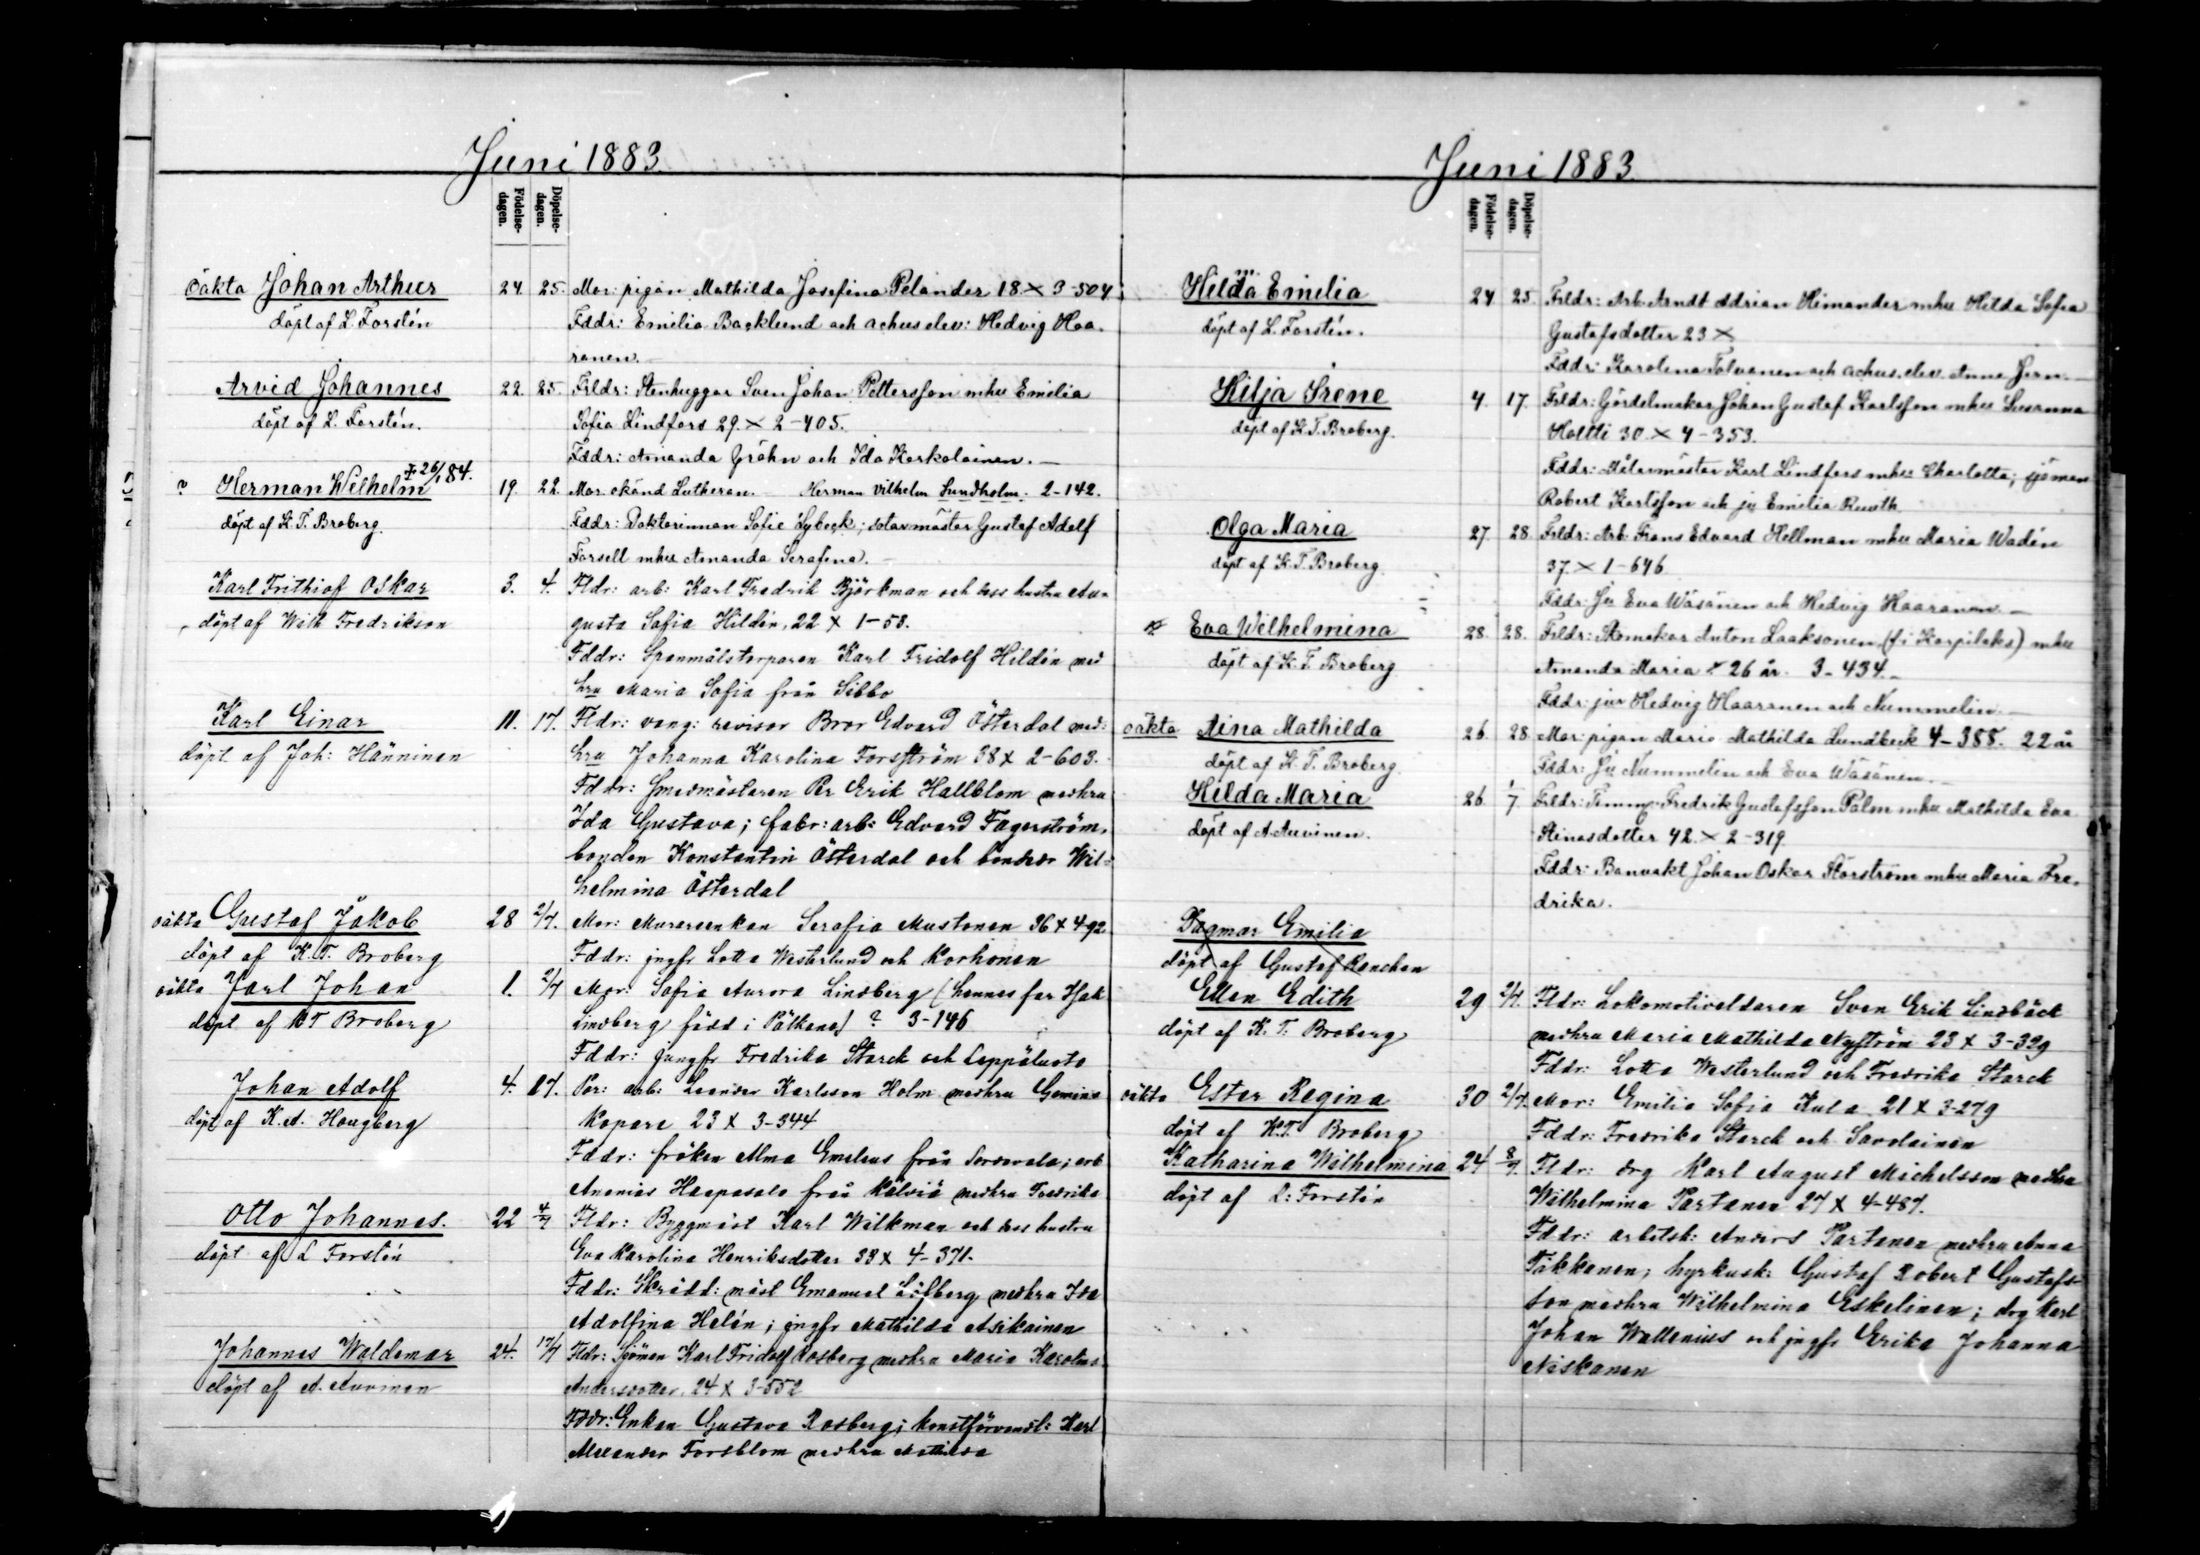 Juni 1883.
Födelse-dagen.
Döpelse-dagen.
oäkta Johan Arthur 24 25. Mor: pigan Mathilda Josefina Pelander 18 × 3-504
döpt af L. Forstén Fddr: Emilia Backlund och achus elev: Hedvig Haa-
ranen.
Arvid Johannes 22. 25. Frldr: Stenhuggar Sven Johan Pettersson mhu Emelia
döpt af L. Forstén. Sofia Lindfors 29. × 2-405.
Fddr: Amanda Gröhn och Ida Karkolainen.
? Herman Wilhelm 19. 22. Mor okänd Lutheran. Herman Vilhelm Sundholm. 2-142.
döpt af K. T. Broberg. Fddr: Doktorinnan Sofie Sybeck; sotarmästar Gustaf Adolf
Forsell mhu Amanda Serafina.
Karl Frithiof Oskar 3. 4. Fldr: arb: Karl Fredrik Björkman och dess hustru Au-
döpt af Wilh Fredrikson gusta Sofia Hildén, 22 × 1-58.
Fddr: Spanmålstorparen Karl Fridolf Hildén med
hru Maria Sofia från Sibbo
Karl Einar 11. 17. Fldr: vang: revisor Bror Edvard Österdal med:
döpt af Joh: Hänninen hru Johanna Karolina Forsström 38 × 2-603.
Fddr: Smedmästaren Per Erik Hallblom medhru
Ida Gustava; fabr: arb: Edvard Fagerström,
bonden Konstantin Österdal och bondedr Wil-
helmina Österdal
oäkta Gustaf Jakob 28 2/7. Mor: Murareenkan Serafia Mustonen 36 × 4-92
döpt af K. T. Broberg Fddr: jngfr Lotta Westerlund och Korhonen
oäkta Jarl Johan 1. 2/7 Mor: Sofia Aurora Lindberg (hennes far Isak
döpt af K T Broberg Lindberg född i Pälkäne) ? 3-146
Fddr: jungfr Fredrika Starck och Leppäluoto
Johan Adolf 4. 17. Par: arb: Leander Karlsson Holm medhru Gemina
döpt af K. A. Hougberg Kopare 23 × 3-344
Fddr: fröken Alma Emeleus från Sordavala; arb
Ananias Haapasalo från Kälviä medhru Fredrika
Otto Johannes. 22 4/7 Fldr: Byggmäst Karl Wilkman och dess hustru
döpt af L Forstén Eva Karolina Henriksdotter 33 × 4-371.
Fddr: Skrädd: mäst Emanuel Löfberg medhru Ida
Adolfina Helén; jngfr Mathilda Asikainen
Johannes Waldemar 24. 17/7 Fldr: Sjöman Karl Fridolf Rosberg medhru Maria Karolina
döpt af A. Auvinen Andersdotter, 24 × 3-552
Fddr: Enkan Gustava Rosberg; konstförvandt: Karl
Alexander Forsblom medhru Mathilda
Juni 1883.
Födelse-dagen.
Döpelse-dagen.
Hilda Emilia 24 25 Frldr: Arb. Arndt Adrian Himander mhu Hilda Sofia
döpt af L. Forstén. Gustafsdotter 23 ×
Fddr: Karolina Tolvanen och achus. elev. Anna Jern.
Hilja Irene 4. 17. Frldr: Gördelmakar Johan Gustaf Karlsson mhu Susanna
döpt af K. T. Broberg. Holtti 30. × 4-353.
Fddr: Målarmästar Karl Lindfors mhu: Charlotta; sjöman
Robert Karlsson och ju Emilia Ruuth
Olga Maria 27. 28. Frldr: Arb: Frans Edvard Hellman mhu Maria Wadén
döpt af K. T. Broberg. 37. × 1-646
Fddr: Ju Eva Wäsänen och Hedvig Haaranen.
Eva Wilhelmina 28. 28. Frldr: Skomakar Anton Laaksonen (f. i Karpilaks) mhu
döpt af K. T. Broberg Amanda Maria 26 år. 3-434.
Fddr: jur Hedvig Haaranen och Nummelin
oäkta Aina Mathilda 26. 28. Mor: pigan Maria Mathilda Lundbeck 4-388. 22 år
döpt af K. T. Broberg. Fddr: Ju Nummelin och Eva Wäsänen.
Hilda Maria 26. 1/7 Frldr: Timmn: Fredrik Gustafsson Palm mhu Mathilda Eva
döpt af A Auvinen. Stinasdotter 42. × 2-319
Fddr: Banvakt Johan Oskar Storström mhu Maria Fre-
drika.
Dagmar Emilia
döpt af Gustaf Ranchen
Ellen Edith 29 2/7. Fldr: Lokomotiveldaren Sven Erik Lindbäck
döpt af K. T. Broberg medhru Maria Mathilda Nyström 23 × 3-329
Fddr: Lotta Westerlund och Fredrika Starck
oäkta Ester Regina 30 2/7. Mor: Emilia Sofia Kula 21 × 3-279
döpt af K. T. Broberg Fddr: Fredrika Starck och Savolainen
Katharina Wilhelmina 24 8/7. Fldr: drg Karl August Michelsson medhru
döpt af L: Forstén Wilhelmina Partanen 27 × 4-487.
Fddr: arbetsk: Anders Partanen medhru Anna
Täkkanen; hyrkusk: Gustaf Robert Gustafs-
son medhru Wilhelmina Eskelinen; drg Karl
Johan Wallenius och jngfr Erika Johanna
Niskanen